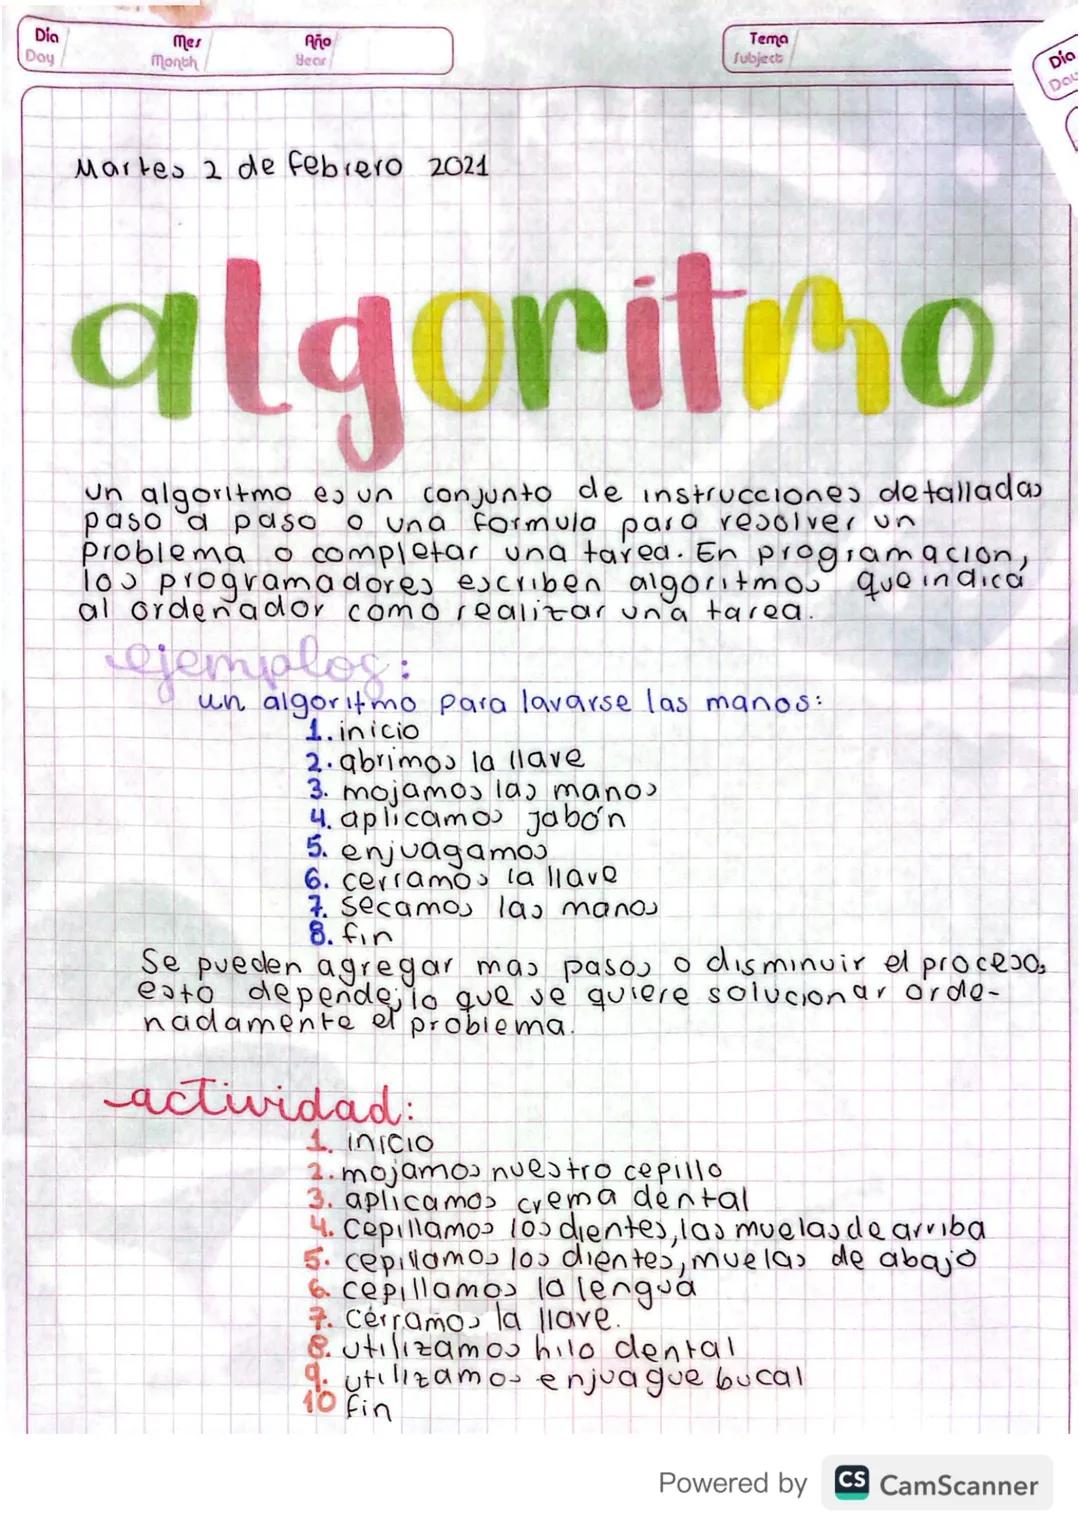 Día Mes Año Tema
Day Month Year Subject
Día
Martes 2 de febrero 2021
algoritmo
un algoritmo es un conjunto de instrucciones detalladas
paso a paso o una formula para resolver un
problema o completar una tarea. En programacion,
los programadores escriben algoritmos que indica
al ordenador como realizar una tarea.
ejemplos:
un algoritmo para lavarse las manos:
1. inicio
2. abrimos la llave
3. mojamos las manos
4. aplicamos jabón
5. enjuagamos
6. cerramos la llave
7. secamos las manos
8. fin
Se pueden agregar mas pasos o disminuir el proceso,
esto depende, lo que se quiere solucionar orde-
nadamente el problema.
actividad:
1. inicio
2. mojamos nuestro cepillo
3. aplicamos crema dental
4. cepillamos los dientes, las muelas de arriba
5. cepillamos los dientes, muelas de abajo
6. cepillamos la lengua
7. cerramos la llave.
8. utilizamos hilo dental
9. utilizamos enjuague bucal
10 fin
Powered by CS CamScanner